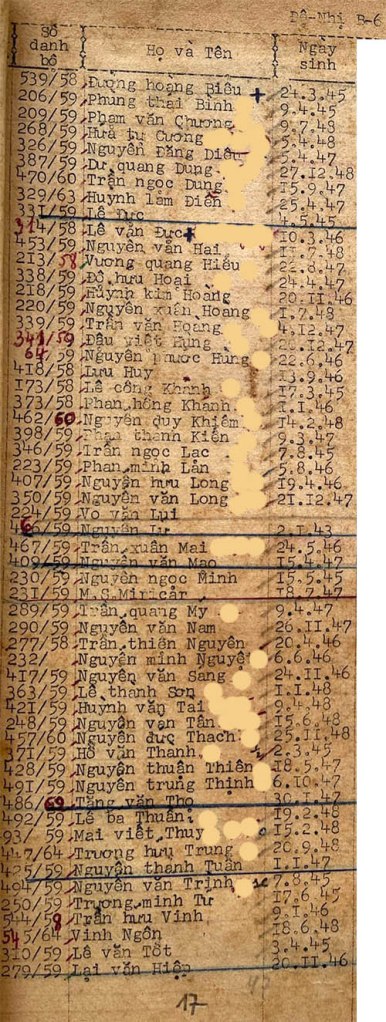 Đệ-Nhị B-6
Số danh bộ Họ và Tên Ngày sinh
539/58 Đường hoàng Biểu + 24.3.45
206/59 Phung thai Bình 9.4.45
209/59 Pham văn Chương 9.7.48
268/59 Hưa tự Cường 5.4.48
326/59 Nguyễn Đăng Diêu 5.4.47
387/59 Dư quang Dung 27.12.48
470/60 Trần ngọc Dung 15.9.47
329/63 Huỳnh lam Điền 25.4.47
331/59 Lê Đức 4.5.45
314/58 Lê văn Đực + 10.3.46
453/59 Nguyễn văn Hai 11.7.48
213/58 Vương quang Hiếu 22.8.47
338/59 Đỗ hưu Hoại 24.4.47
218/59 Huỳnh kim Hoàng 20.11.46
220/59 Nguyễn xuân Hoang 1.7.48
339/59 Trần văn Hoang 4.12.47
341/59 Đậu việt Hùng 20.12.47
64/59 Nguyễn phước Hung 22.6.46
418/58 Lưu Huy 13.9.46
173/58 Lê công Khanh 17.3.45
373/58 Phan hồng Khanh 1.1.46
462/60 Nguyễn duy Khiêm 14.2.48
398/59 Phan thanh Kiến 9.3.47
346/59 Trần ngọc Lạc 7.8.45
223/59 Phan minh Lân 5.8.46
407/59 Nguyễn hưu Long 19.4.46
350/59 Nguyễn văn Long 21.12.47
224/59 Vo văn Lui
6/59 Nguyễn Lự 2.1.43
467/59 Trần xuân Mai 24.5.46
409/59 Nguyễn văn Mao 15.4.47
230/59 Nguyễn ngọc Minh 15.5.45
231/59 M.S.Miricar 18.7.47
289/59 Trần quang My 9.4.47
290/59 Nguyễn văn Nam 26.11.47
277/58 Trần thiên Nguyên 20.4.46
232/ Nguyễn minh Nguyệ 6.6.46
417/59 Nguyễn văn Sang 24.11.46
363/59 Lê thanh Sơn 1.1.48
421/59 Huỳnh văn Tai 9.4.48
248/59 Nguyễn vạn Tấn 15.6.48
457/60 Nguyễn đức Thach 25.11.48
371/59 Hồ văn Thanh 2.3.45
428/59 Nguyễn thuận Thiên 18.5.47
491/59 Nguyễn trung Thịnh 6.10.47
486/69 Tăng văn Thọ 30.1.47
492/59 Lê ba Thuân 19.2.48
93/ 59 Mai viết Thuy 15.2.48
447/64 Trương hưu Trung 20.9.48
425/59 Nguyễn thanh Tuân 1.1.47
404/59 Nguyễn văn Trịnh 7.8.45
250/59 Trương minh Tư 17.6.45
544/59 Trần hưu Vinh 9.1.46
545/64 Vinh Ngôn 18.6.48
310/59 Lê văn Tốt 3.4.45
279/59 Lại văn Hiệp 20.11.46
17